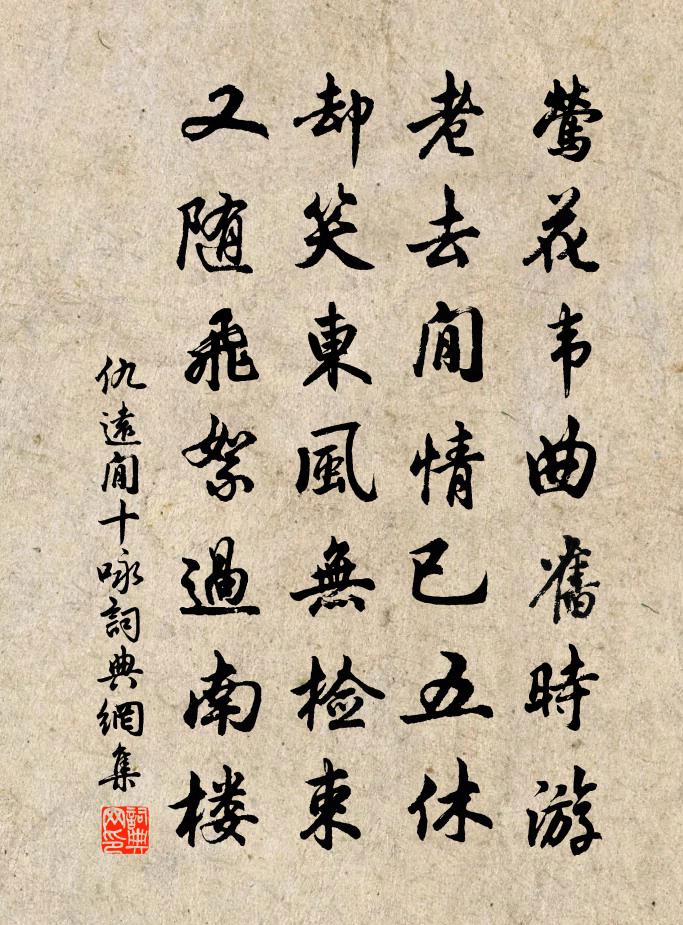 莺花韦曲舊時游
老去閒情已五休
却笑東風無檢束
又随飛絮過南楼
仇遠閒十咏詞典網集
詞典網印